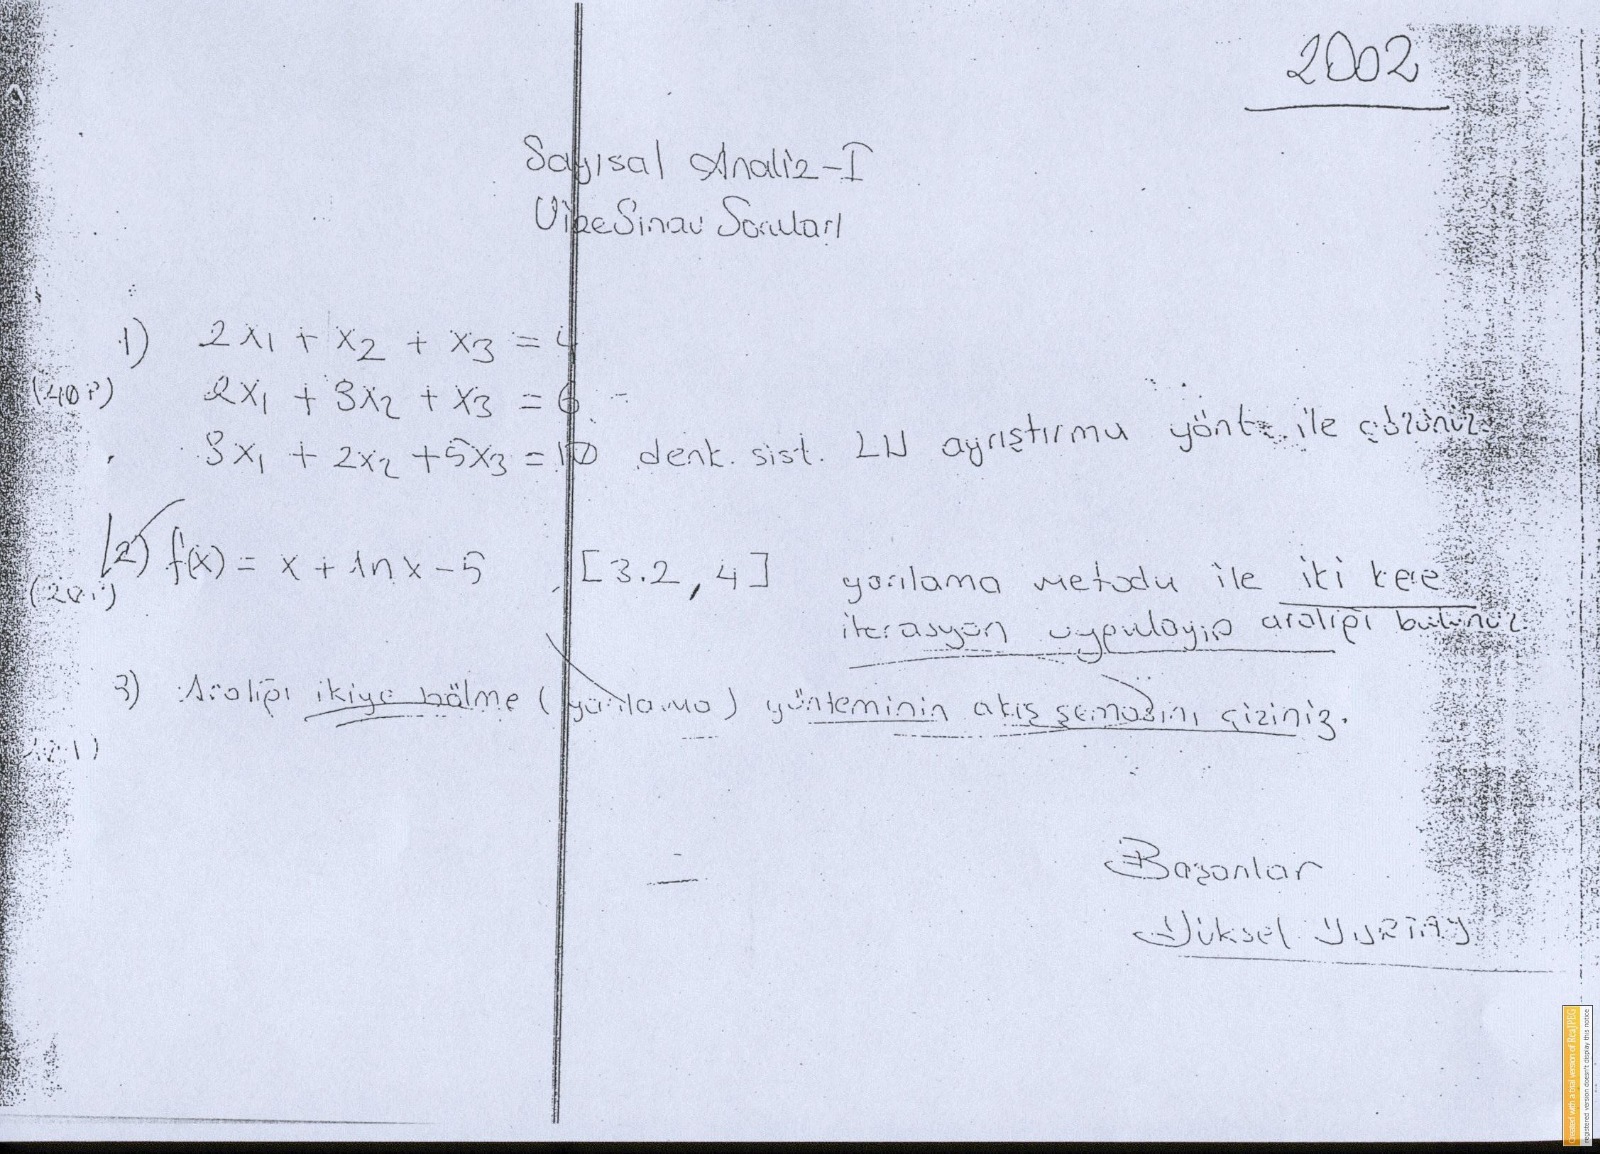 2002
Sayısal Analiz-I
Vize Sınav Soruları
1) 2x₁ + x₂ + x₃ = 4
(40p) 2x₁ + 3x₂ + x₃ = 6
3x₁ + 2x₂ + 5x₃ = 10 denk. sist. LU ayrıştırma yönt. ile çözünüz
2) f(x) = x + ln x - 5 [3.2, 4] yarılama metodu ile iki kere
iterasyon uygulayıp aralığı bulunuz.
3) Aralığı ikiye bölme (yarılama) yönteminin akış şemasını çiziniz.
Başarılar
Yüksel YURTAY
Created with a trial version of
registered version doesn't display this notice